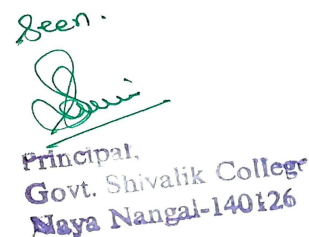 Seen.
Principal,
Govt. Shivalik College
Naya Nangal-140126